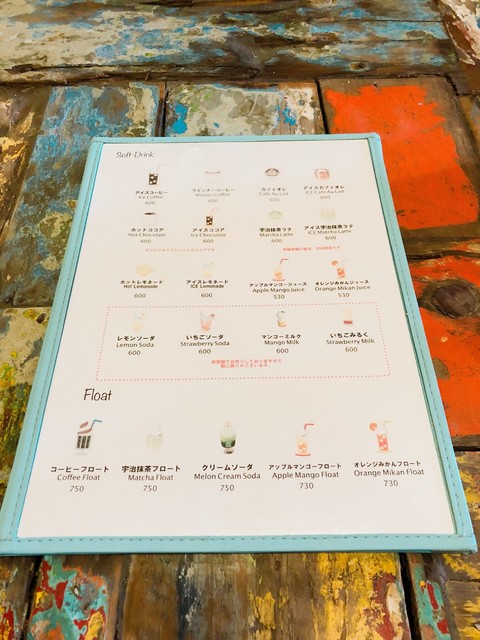 Soft-Drink
アイスコーヒー ウインナーコーヒー カフェオレ アイスカフェオレ
Ice Coffee Winner Coffee Café Au Lait ICE Café Au Lait
600 600 600 600
ホットココア アイスココア 宇治抹茶ラテ アイス宇治抹茶ラテ
Hot Chocolate Ice Chocolate Matcha Latte ICE Matcha Latte
600 600 600 600
ホットレモネード アイスレモネード アップルマンゴージュース オレンジみかんジュース
Hot Lemonade ICE Lemonade Apple Mango Juice Orange Mikan Juice
600 600 530 530
レモンソーダ いちごソーダ マンゴーミルク いちごみるく
Lemon Soda Strawberry Soda Mango Milk Strawberry Milk
600 600 600 600
自家製でお作りしておりますので
数に限りがございます
Float
コーヒーフロート 宇治抹茶フロート クリームソーダ アップルマンゴーフロート オレンジみかんフロート
Coffee Float Matcha Float Melon Cream Soda Apple Mango Float Orange Mikan Float
750 750 750 730 730